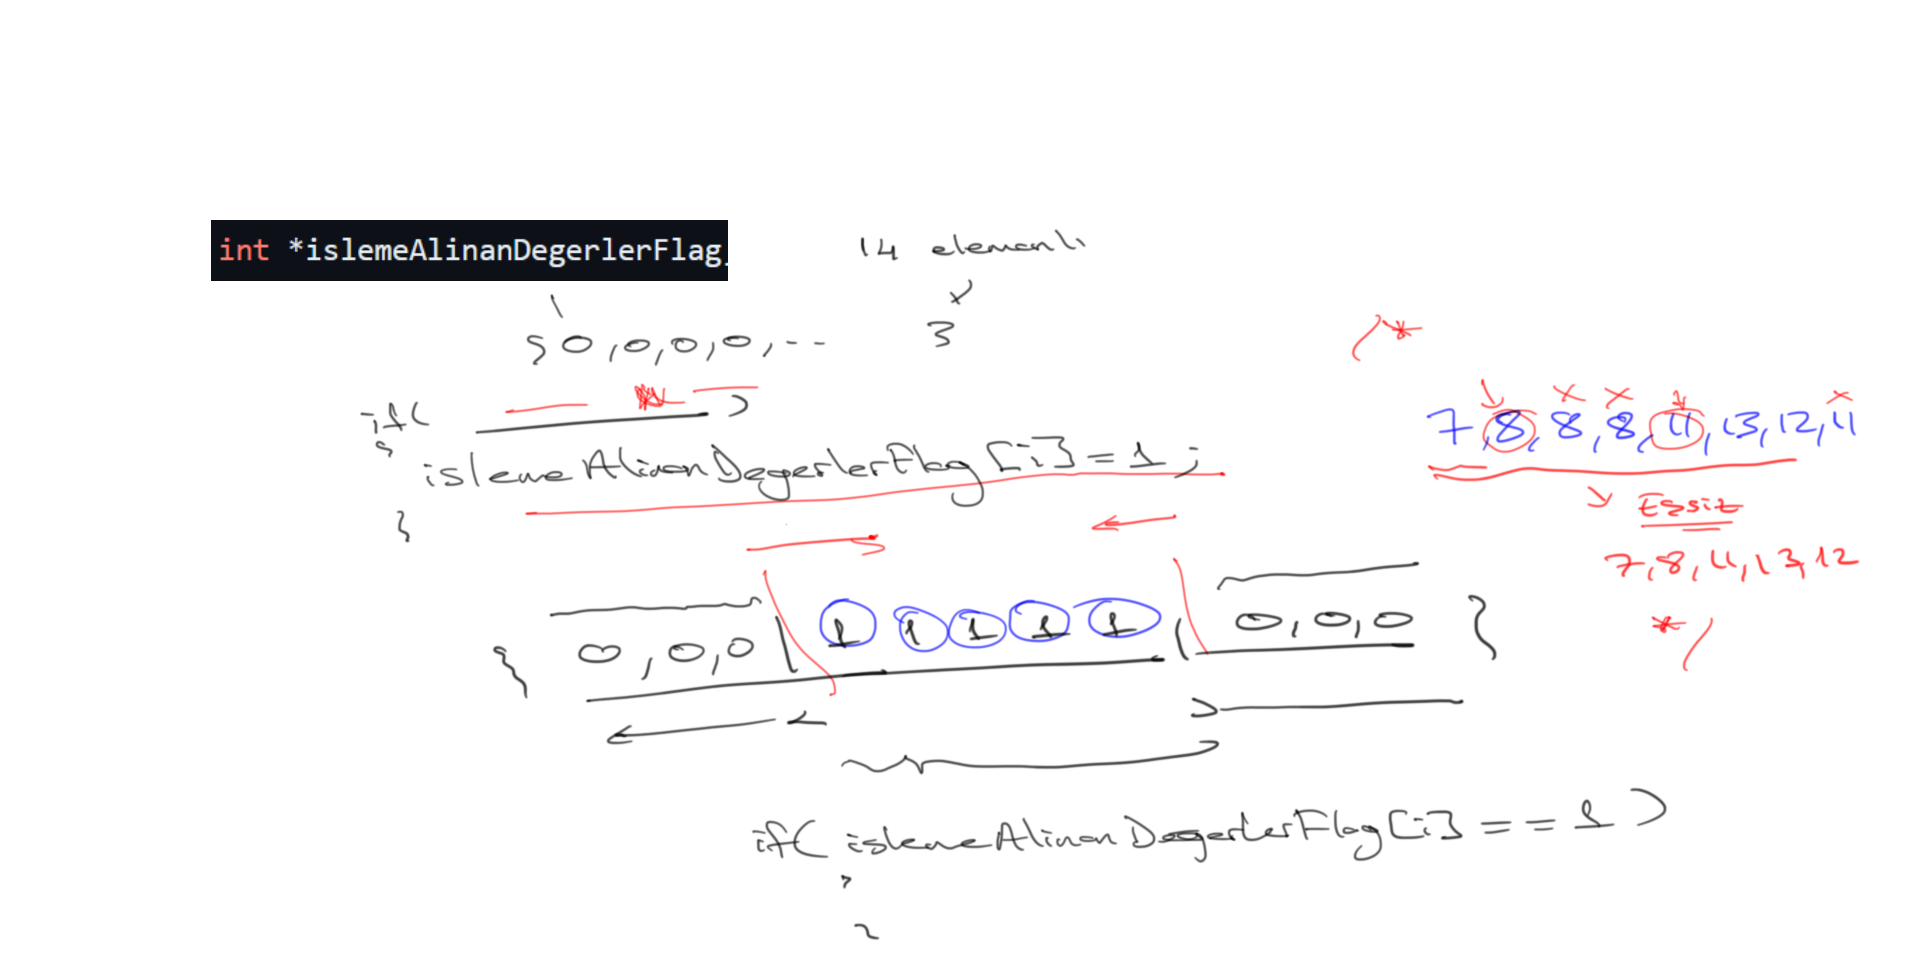 int *islemeAlinanDegerlerFlag
14 elemanlı
{ 0, 0, 0, 0, -- }
/*
if( )
{
7, 8, 8, 8, 11, 13, 12, 11
islemeAlinanDegerlerFlag[i] = 1;
}
Eşsiz
7, 8, 11, 13, 12
{ 0, 0, 0 | 1 1 1 1 1 | 0, 0, 0 }
*/
if( islemeAlinanDegerlerFlag[i] == 1 )